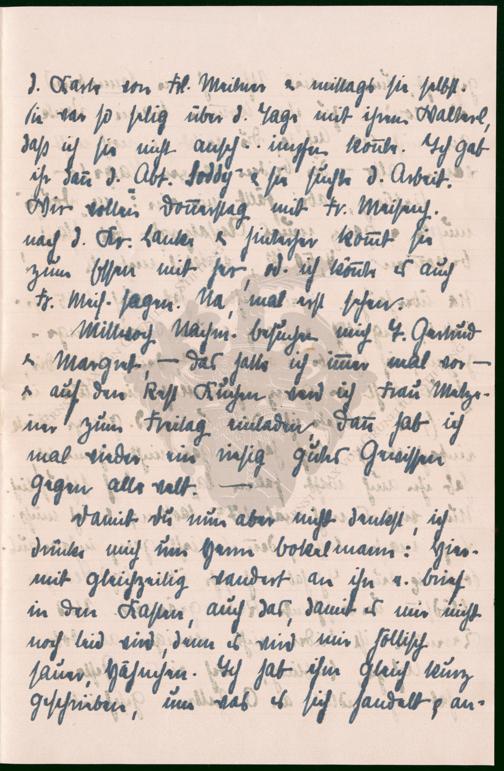 d. Karte von Frl. Meitner u mittags sie selbst.
Sie war so selig über d. Tage mit ihrem Walterl,
daß ich sie nicht ausch. impfen konnte. Ich gab
ihr dann d. Abt. Soddy u sie suchte d. Arbeit.
Wir wollen Donnerstag mit Fr. Meisenh.
nach d. Kr. Lanke u hinterher kommt sie
zum Essen mit her, od. ich könnte es auch
Fr. Meis. sagen. Na, mal erst sehen.
Mittwoch Nachm. besuchen mich T. Gertrud
u Margret, — das hatte ich immer mal vor —
u auf den Rest Kuchen werd ich Frau Metze-
ner zum Freitag einladen. Dann hab ich
mal wieder ein riesig gutes Gewissen
gegen alle Welt. —
Damit du nun aber nicht denkst, ich
drücke mich um Herrn Bokelmann: Hier-
mit gleichzeitig wandert an ihn e. Brief
in den Kasten, auch das, damit es mir nicht
noch leid wird, denn es wird mir höllisch
sauer, Hähnchen. Ich hab ihm gleich kurz
geschrieben, um was es sich handelt, an-